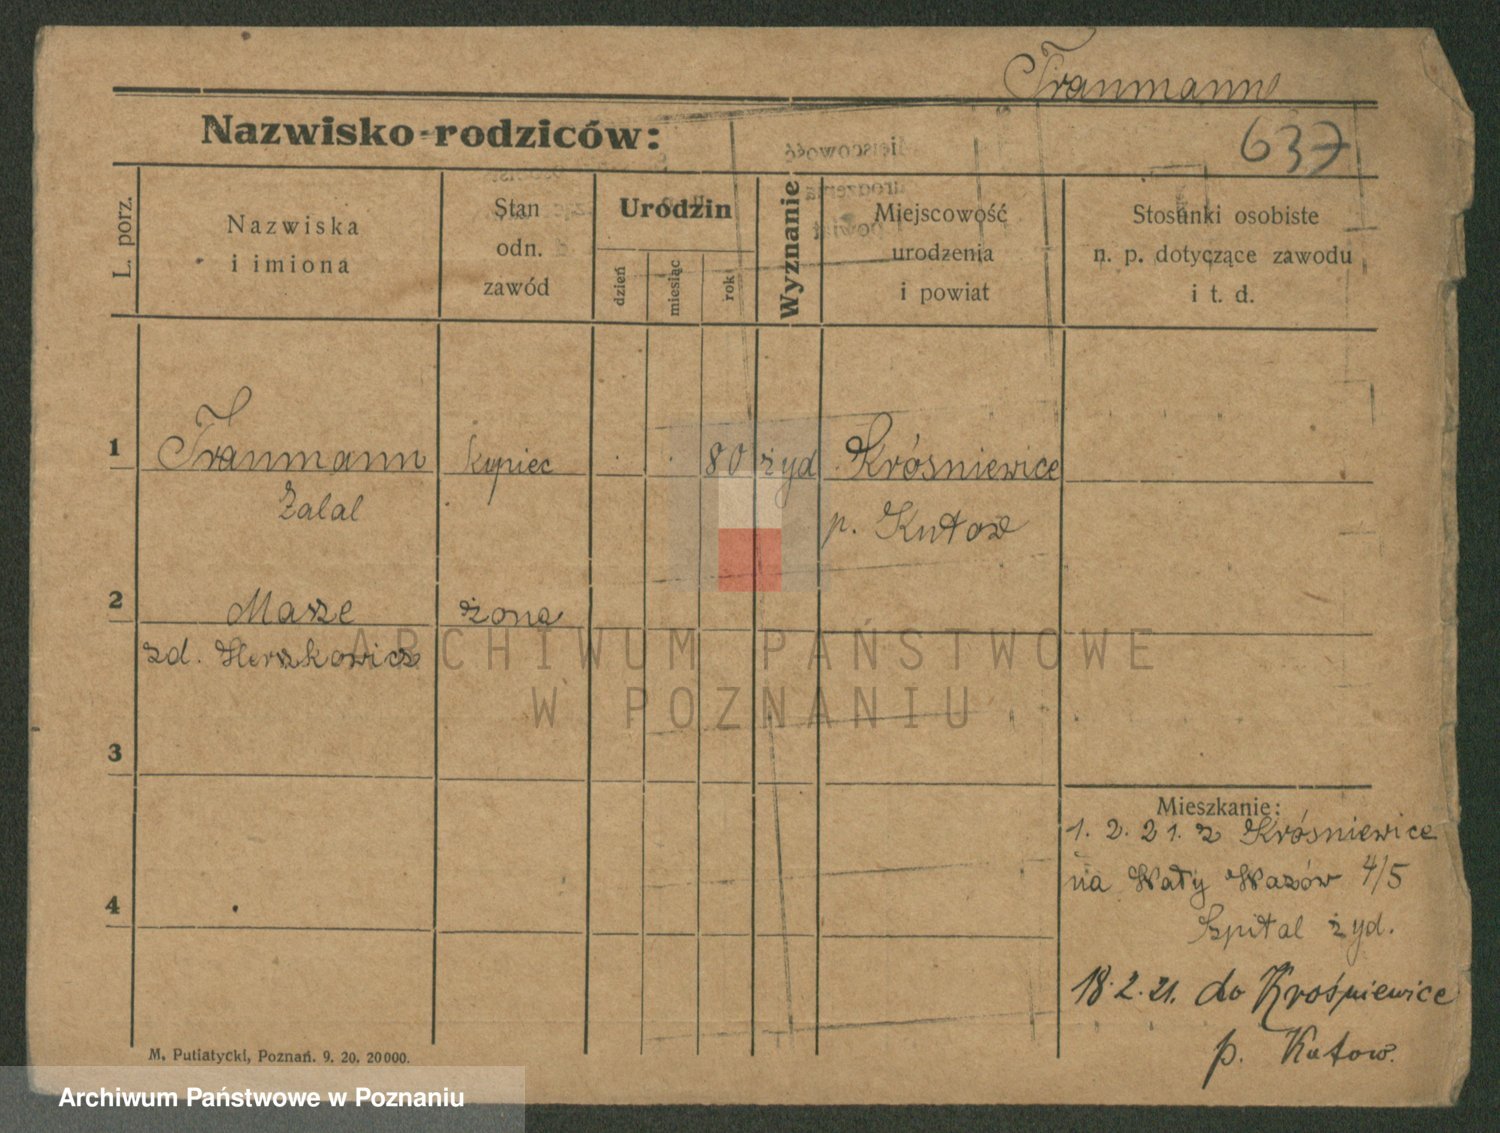 Traumann
637
Nazwisko rodziców:
L. porz.
Nazwiska
i imiona
Stan
odn.
zawód
Urodzin
dzień
miesiąc
rok
Wyznanie
Miejscowość
urodzenia
i powiat
Stosunki osobiste
n. p. dotyczące zawodu
i t. d.
1 Traumann kupiec . . 80 żyd Króśniewice
Zalal p. Kutow
2 Masze żona
zd. Herszkowicz
3
4
Mieszkanie:
1. 2. 21. z Króśniewice
na Wały Wazów 4/5
Szpital żyd.
18.2.21. do Krośniewice
p. Kutow.
M. Putiatycki, Poznań. 9. 20. 20000.
ARCHIWUM PAŃSTWOWE
W POZNANIU
Archiwum Państwowe w Poznaniu